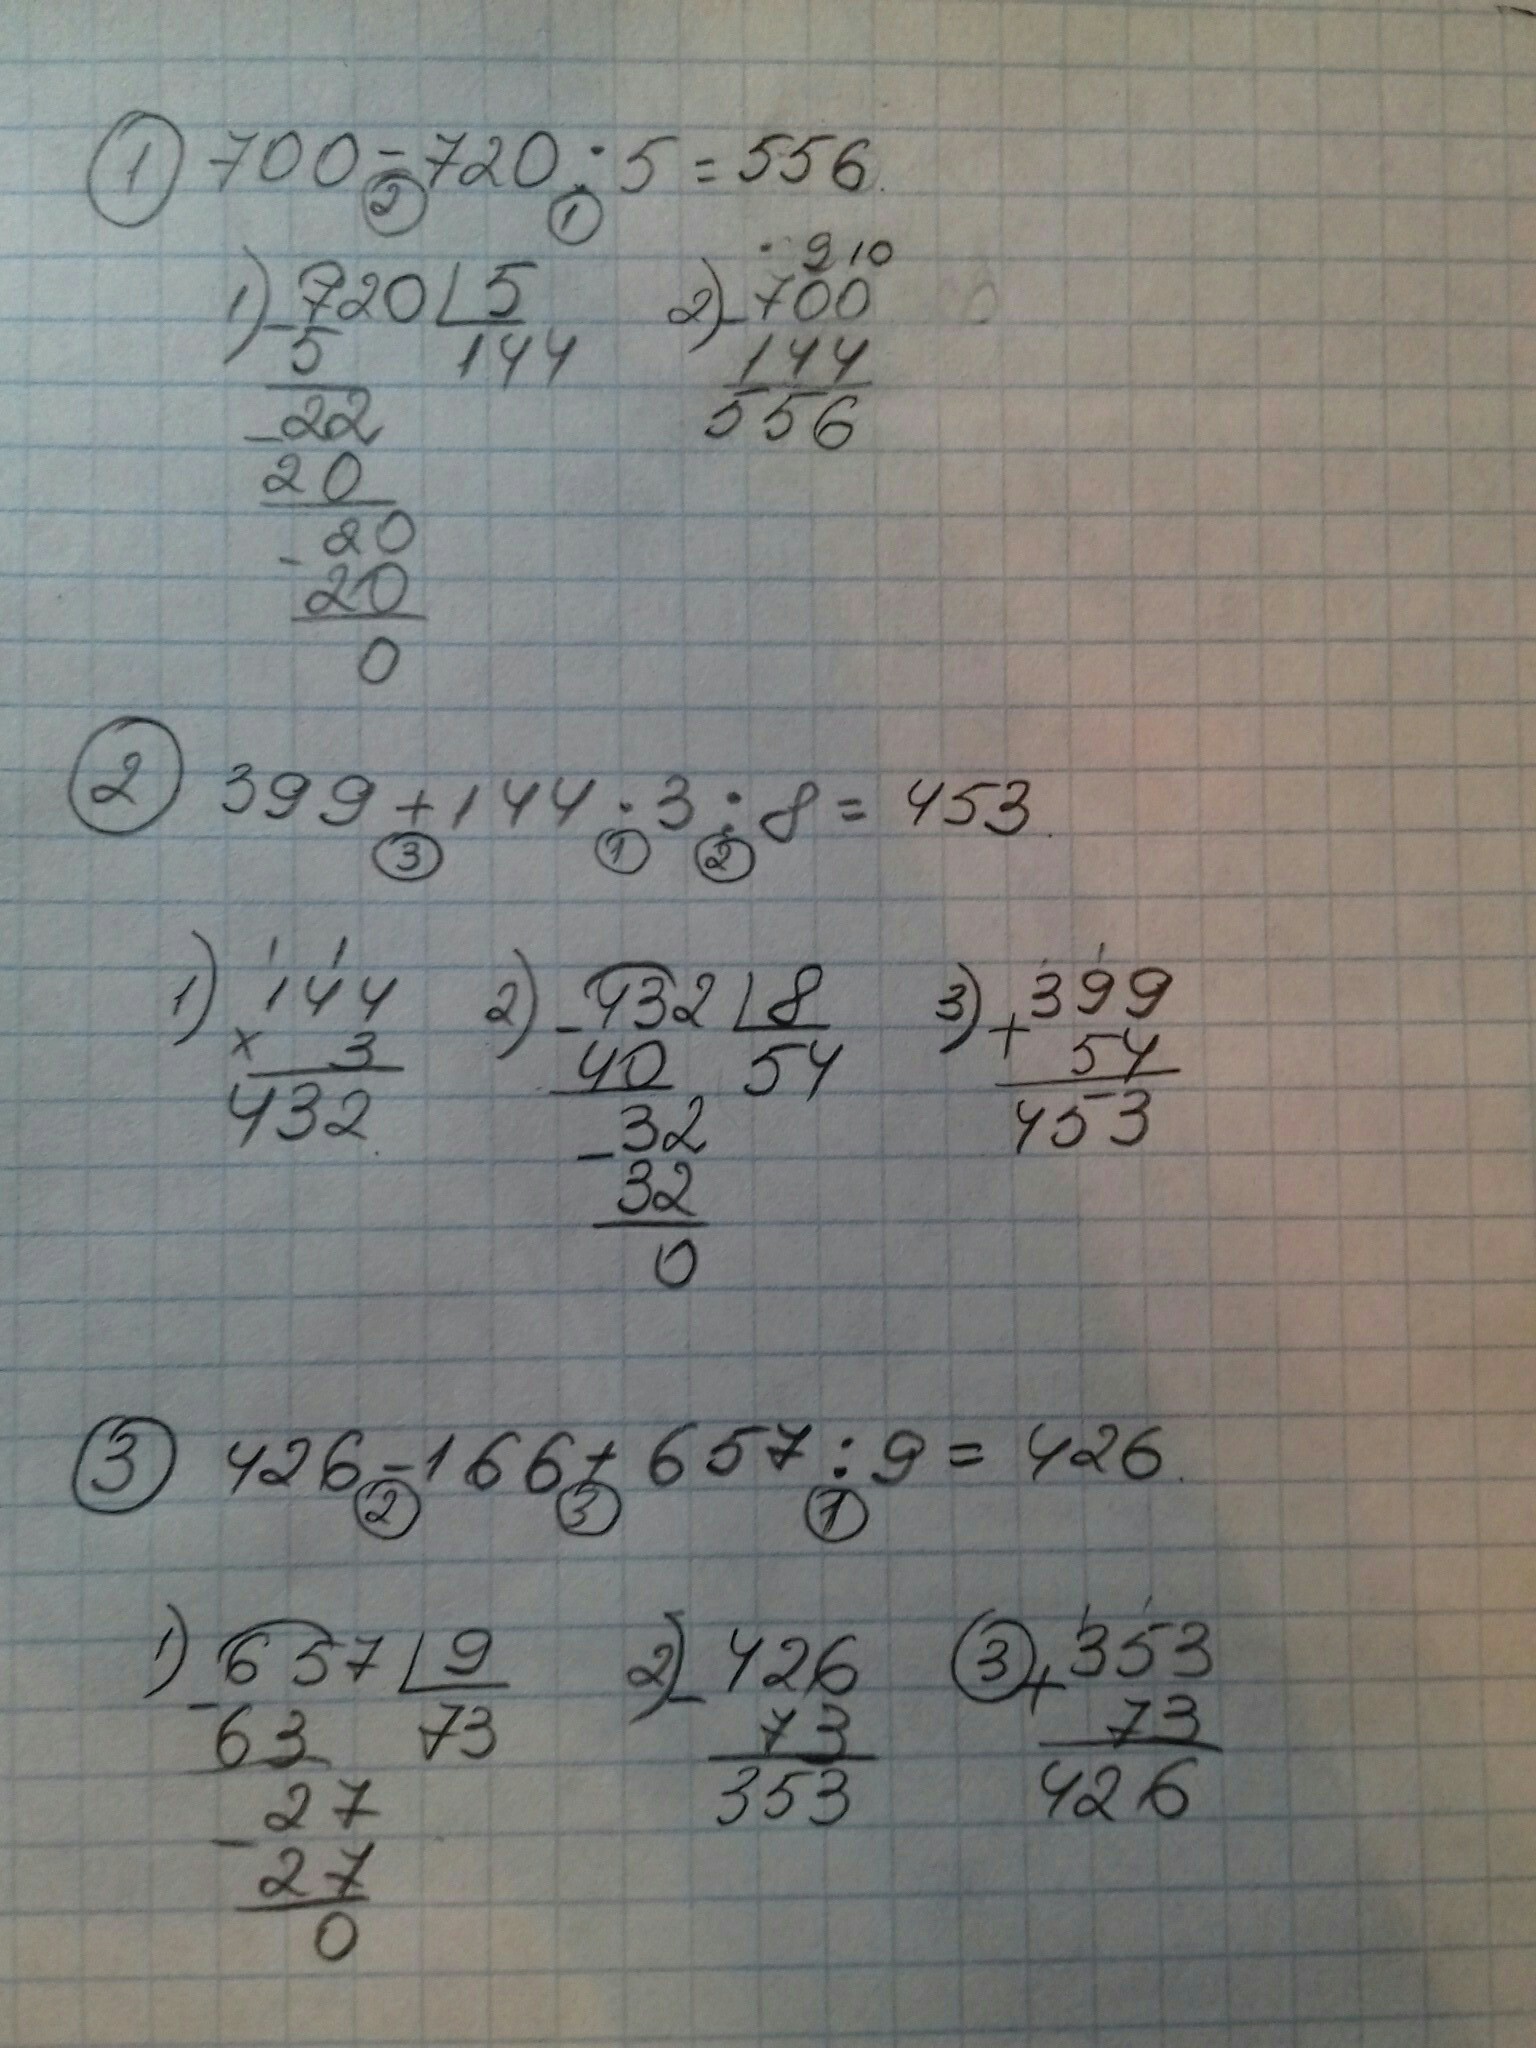 ① 700 - 720 : 5 = 556.
② ①
1) 720 5 2) 700
9 10
- 5 144 - 144
- 22 556
20
- 20
20
0
② 399 + 144 · 3 : 8 = 453.
③ ① ②
1 1 1
1) 144 2) - 432 8 3) + 399
× 3 40 54 54
432. - 32 453
32
0
③ 426 - 166 + 657 : 9 = 426.
② ③ ①
1) - 657 9 2) - 426 ③ + 353
63 73 73 73
- 27 353 426
27
0